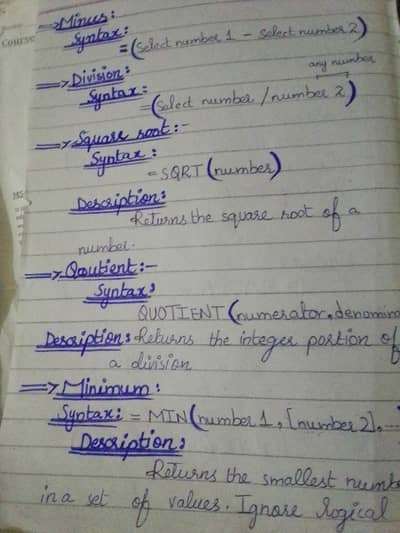 => Minus:
Syntax:
Course
= (select number 1 - select number 2)
=> Division:
any number
Syntax:
(select number / number 2)
=> Square root:-
Syntax:
= SQRT (number)
Description:
Returns the square root of a
number.
=> Qoutient:-
Syntax:
QUOTIENT (numerator, denomina
Description: Returns the integer portion of
a division
=> Minimum:
Syntax: = MIN (number 1, [number 2], ...
Description:
Returns the smallest numbe
in a set of values. Ignore logical